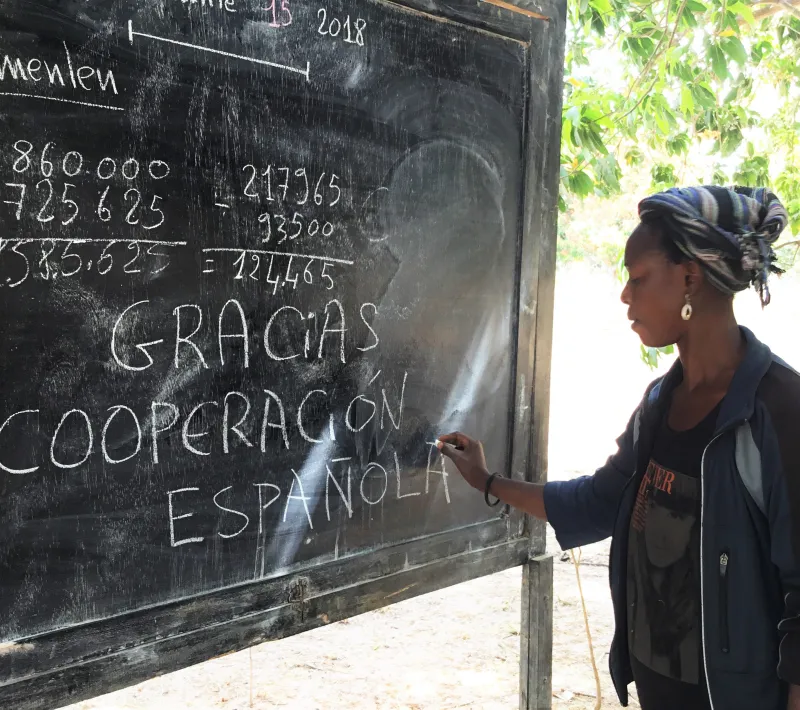 15 2018
860.000
725.625
585.625
217965
- 93500
= 124.465
GRACIAS
COOPERACIÓN
ESPAÑOLA